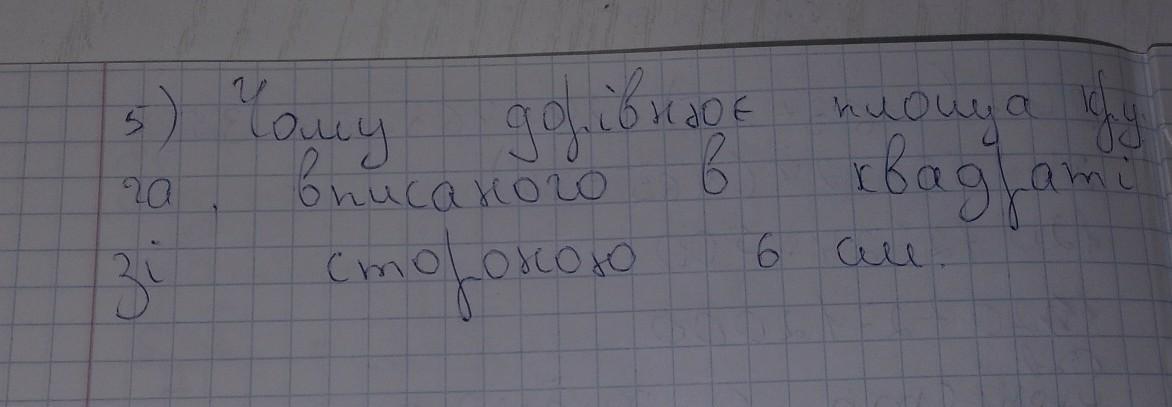 5) Чому дорівнює площа кру
га, вписаного в квадраті
зі стороною 6 см.